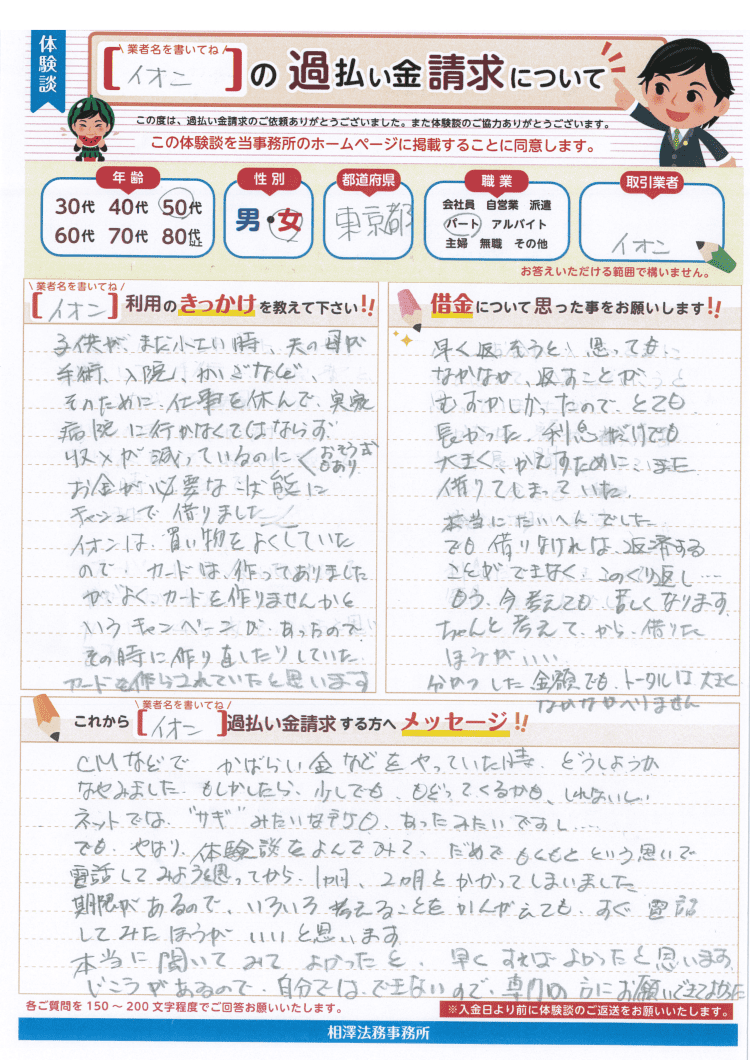 体験談
業者名を書いてね
[イオン]の過払い金請求について
この度は、過払い金請求のご依頼ありがとうございました。また体験談のご協力ありがとうございます。
この体験談を当事務所のホームページに掲載することに同意します。
年齢
30代 40代 50代
60代 70代 80代以上
性別
男・女
都道府県
東京都
職業
会社員 自営業 派遣
パート アルバイト
主婦 無職 その他
取引業者
イオン
お答えいただける範囲で構いません。
業者名を書いてね
[イオン]利用のきっかけを教えて下さい!!
子供がまだ小さい時、夫の母が
手術、入院、かいごなど、
そのために、仕事を休んで、実家
病院に行かなくてはならず
収入が減っているのに<おそう式もあり
お金が必要な状態に
キャッシングで借りました
イオンは、買い物をよくしていた
ので、カードは、作ってありました
が、よく、カードを作りませんかと
いうキャンペーンが、あったので
その時に作り直したりしていた
カードを作らされていたと思います
借金について思った事をお願いします!!
早く返そうと思っても
なかなか、返すことが
むずかしかったので、とても
長かった、利息だけでも
大きく、かえすために、また
借りてしまっていた。
本当にたいへんでした
でも借りなければ、返済する
ことができなく、このくり返し…
もう、今考えても苦しくなります
ちゃんと考えて、から、借りた
ほうがいい、
分かつした金額でも、トータルは大きく
なかなかへりません
業者名を書いてね
これから[イオン]過払い金請求する方へメッセージ!!
CMなどで かばらい金などをやっていた時、どうしようか
なやみました。もしかしたら、少しでも、もどってくるかも、しれないし、
ネットでは、"サギ"みたいな記事も、あったみたいですし…
でも、やはり、体験談をよんでみて、だめでもともとという思いで
電話してみようと思ってから、1ヵ月、2ヵ月とかかってしまいました
期限があるので、いろいろ考えることをかんがえても、すぐ電話
してみたほうがいいと思います
本当に聞いてみてよかったと、早くすればよかったと思います。
じこうがあるので、自分では、できないので、専門の方にお願いできてよかった
各ご質問を150〜200文字程度でご回答お願いいたします。
※入金日より前に体験談のご返送をお願いいたします。
相澤法務事務所